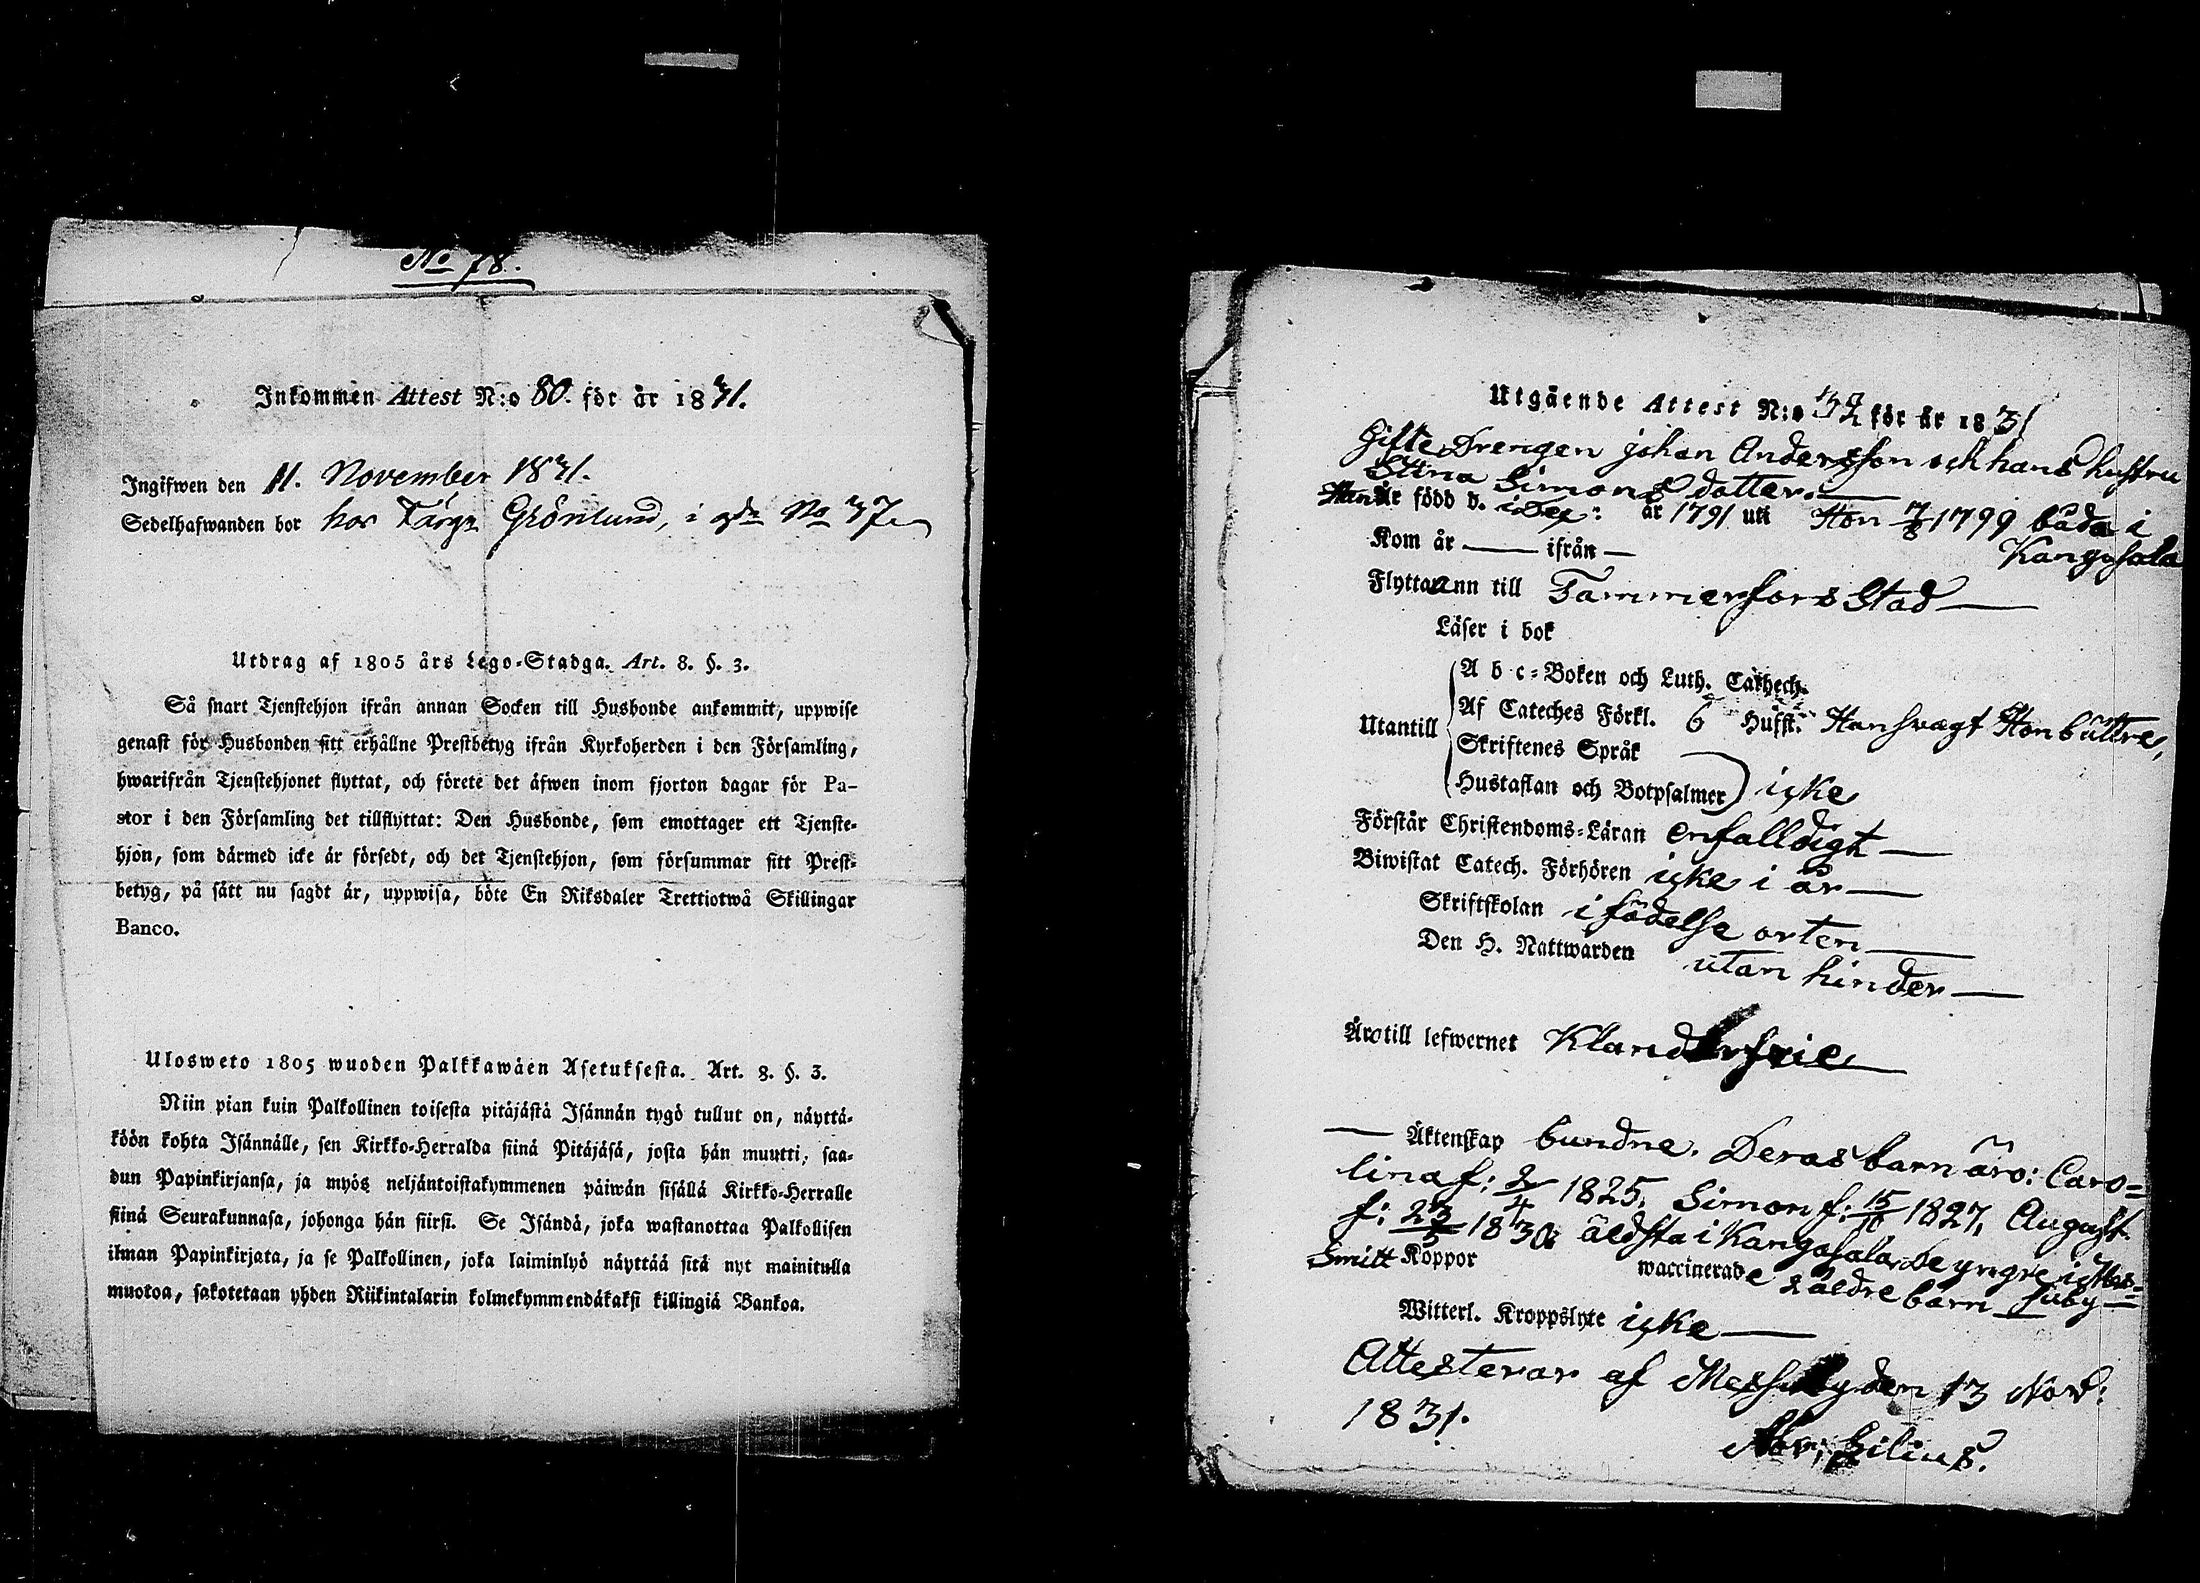 No 78.
Inkommen Attest N:o 80. för år 1831.
Ingifwen den 11. November 1831.
Sedelhafwanden bor hos Färg: Grönlund, i gdn No 37.
Utdrag af 1805 års Lego-Stadga. Art. 8. §. 3.
Så snart Tjenstehjon ifrån annan Socken till Husbonde ankommit, uppwise
genast för Husbonden sitt erhållne Prestbetyg ifrån Kyrkoherden i den Församling,
hwarifrån Tjenstehjonet flyttat, och förete det äfwen inom fjorton dagar för Pa-
stor i den Församling det tillflyttat: Den Husbonde, som emottager ett Tjenste-
hjon, som därmed icke är försedt, och det Tjenstehjon, som försummar sitt Prest-
betyg, på sätt nu sagdt är, uppwisa, böte En Riksdaler Trettiotwå Skillingar
Banco.
Ulosweto 1805 wuoden Palkkawäen Asetuksesta. Art. 8. §. 3.
Niin pian kuin Palkollinen toisesta pitäjästä Isännän tygö tullut on, näyttä-
köön kohta Isännälle, sen Kirkko-Herralda siinä Pitäjäsä, josta hän muutti, saa-
dun Papinkirjansa, ja myös neljäntoistakymmenen päiwän sisällä Kirkko-Herralle
siinä Seurakunnasa, johonga hän siirsi. Se Isändä, joka wastanottaa Palkollisen
ilman Papinkirjata, ja se Palkollinen, joka laiminlyö näyttää sitä nyt mainitulla
muotoa, sakotetaan yhden Riikintalarin kolmekymmendäkaksi killingiä Bankoa.
Utgående Attest N:o 32 för år 1831
Gifte Drengen Johan Andersson och hans hustru
Stina Simonsdotter.
Han är född d. i Dec: år 1791 uti Hon 7/8 1799 båda i
Kangasala
Kom år — ifrån —
Flytta nn till Tammerfors Stad
Läser i bok
A b c-Boken och Luth. Cathech.
Utantill Af Cateches Förkl. 6 Hufst. Han svagt Hon bättre,
Skriftenes Språk
Hustaflan och Botpsalmer icke
Förstår Christendoms-Läran enfalldigt
Biwistat Catech. Förhören icke i år
Skriftskolan i födelse orten
Den H. Nattwarden utan hinder
Äro till lefwernet Klanderfrie
Äktenskap bundne. Deras barn äro: Caro=
lina f: 2/4 1825, Simon f: 15/10 1827, August
f: 23/5 1830 äldsta i Kangasala, De yngre i Mes=
Smitt Koppor waccinerade 2 äldre barn suby
Witterl. Kroppslyte icke
Attesterar af Messuby den 13 Nov:
1831.
Abr: Gilius.